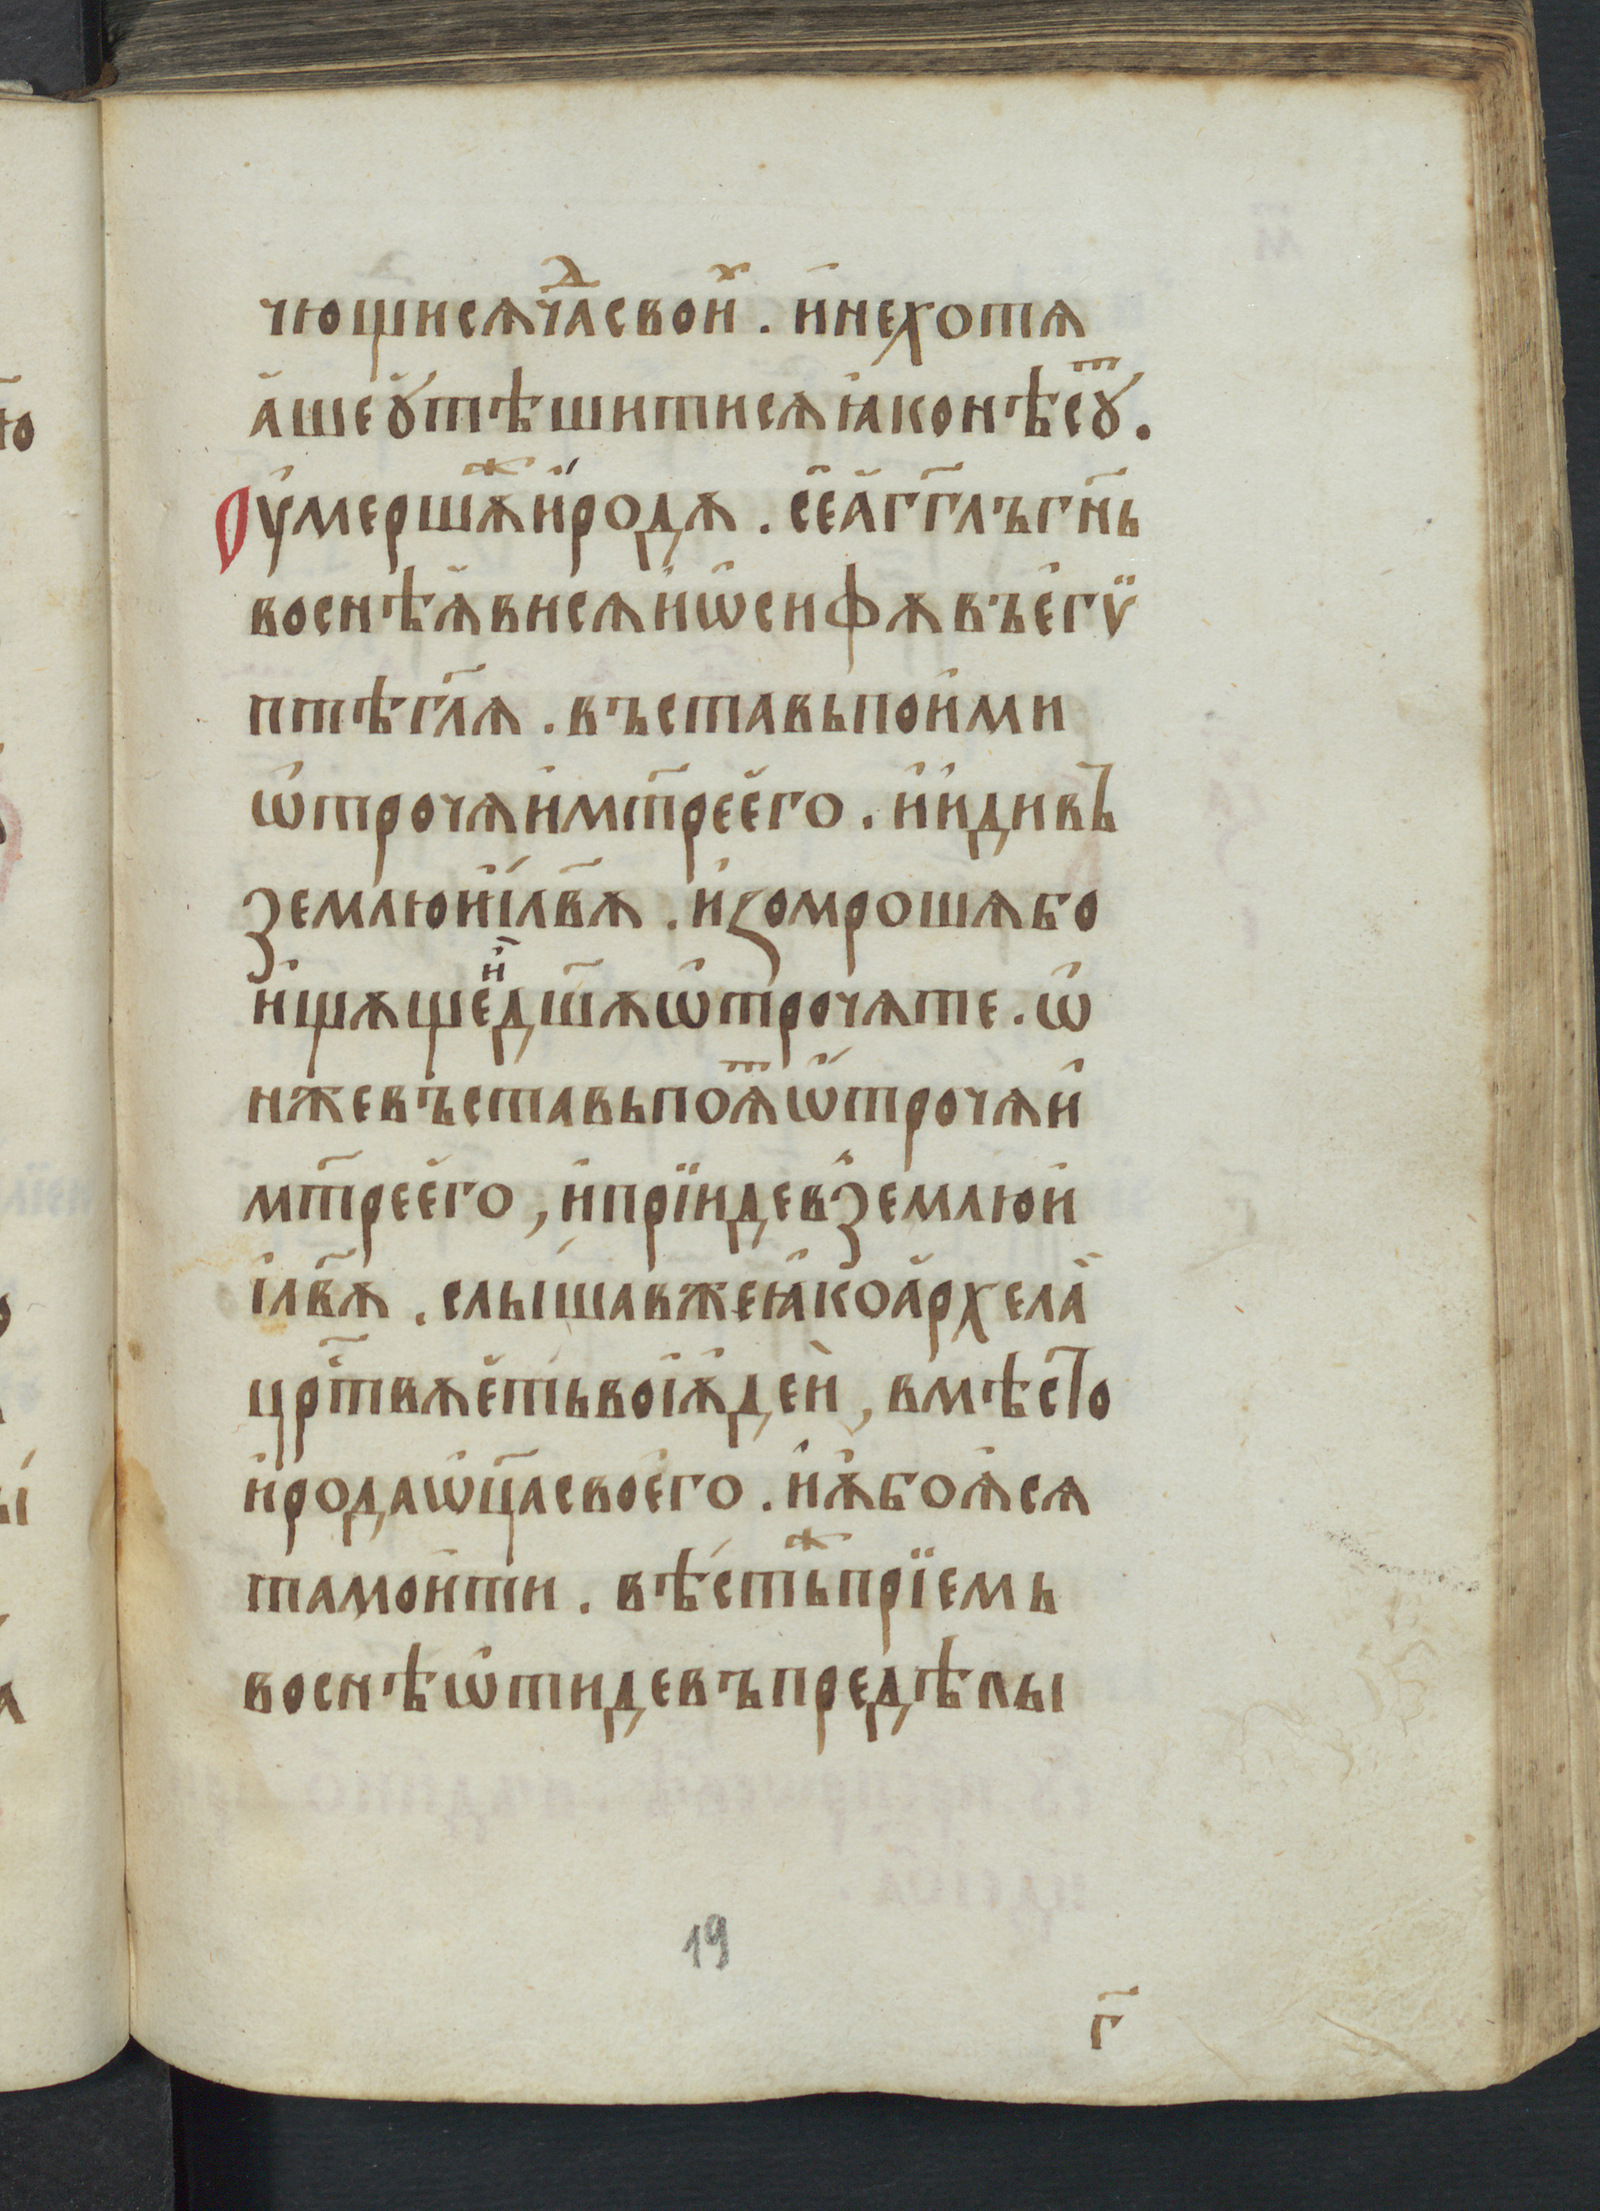 чющисѧ ча̑дсвои̑х . и̑нехотѧ
а̑шеꙋ̑тѣшитисѧ ꙗ҆конѣсꙋ̑т .
Оу҆мершꙋ̑ж и҆родꙋ . се҆а҆гг҃лъгн҃ь
воснѣꙗ҆висѧ ие҆ѡсифꙋвъе҆гѵ
птѣгл҃ѧ . въставьпои҆ми
ѡ҆трочѧи҆мт҃рее҆го . и҆идивъ
землюи҆і҆лв҃ꙋ . и҆зомрошѧбо
и҆щꙋщеи҆дш҃ѧѡ҆трочѧте . ѡ҆
нжевъставьпоѧ҆тѡ҆трочѧи҆
мт҃рее҆го , и҆прїидевземлюи
і҆лв҃ꙋ . слы́шавжеꙗ҆коа҆рхела҆
црт҃вꙋе҆тьвоіꙋ҆деи҆ , вмѣсто
и҆родаѡ҆ц҃асвое҆го . и҆ꙋ҆боѧ҆сѧ
тамои҆ти . вѣ́стьжпрїемь
воснѣѡ҆тидевъпредѣлы
19
г҃